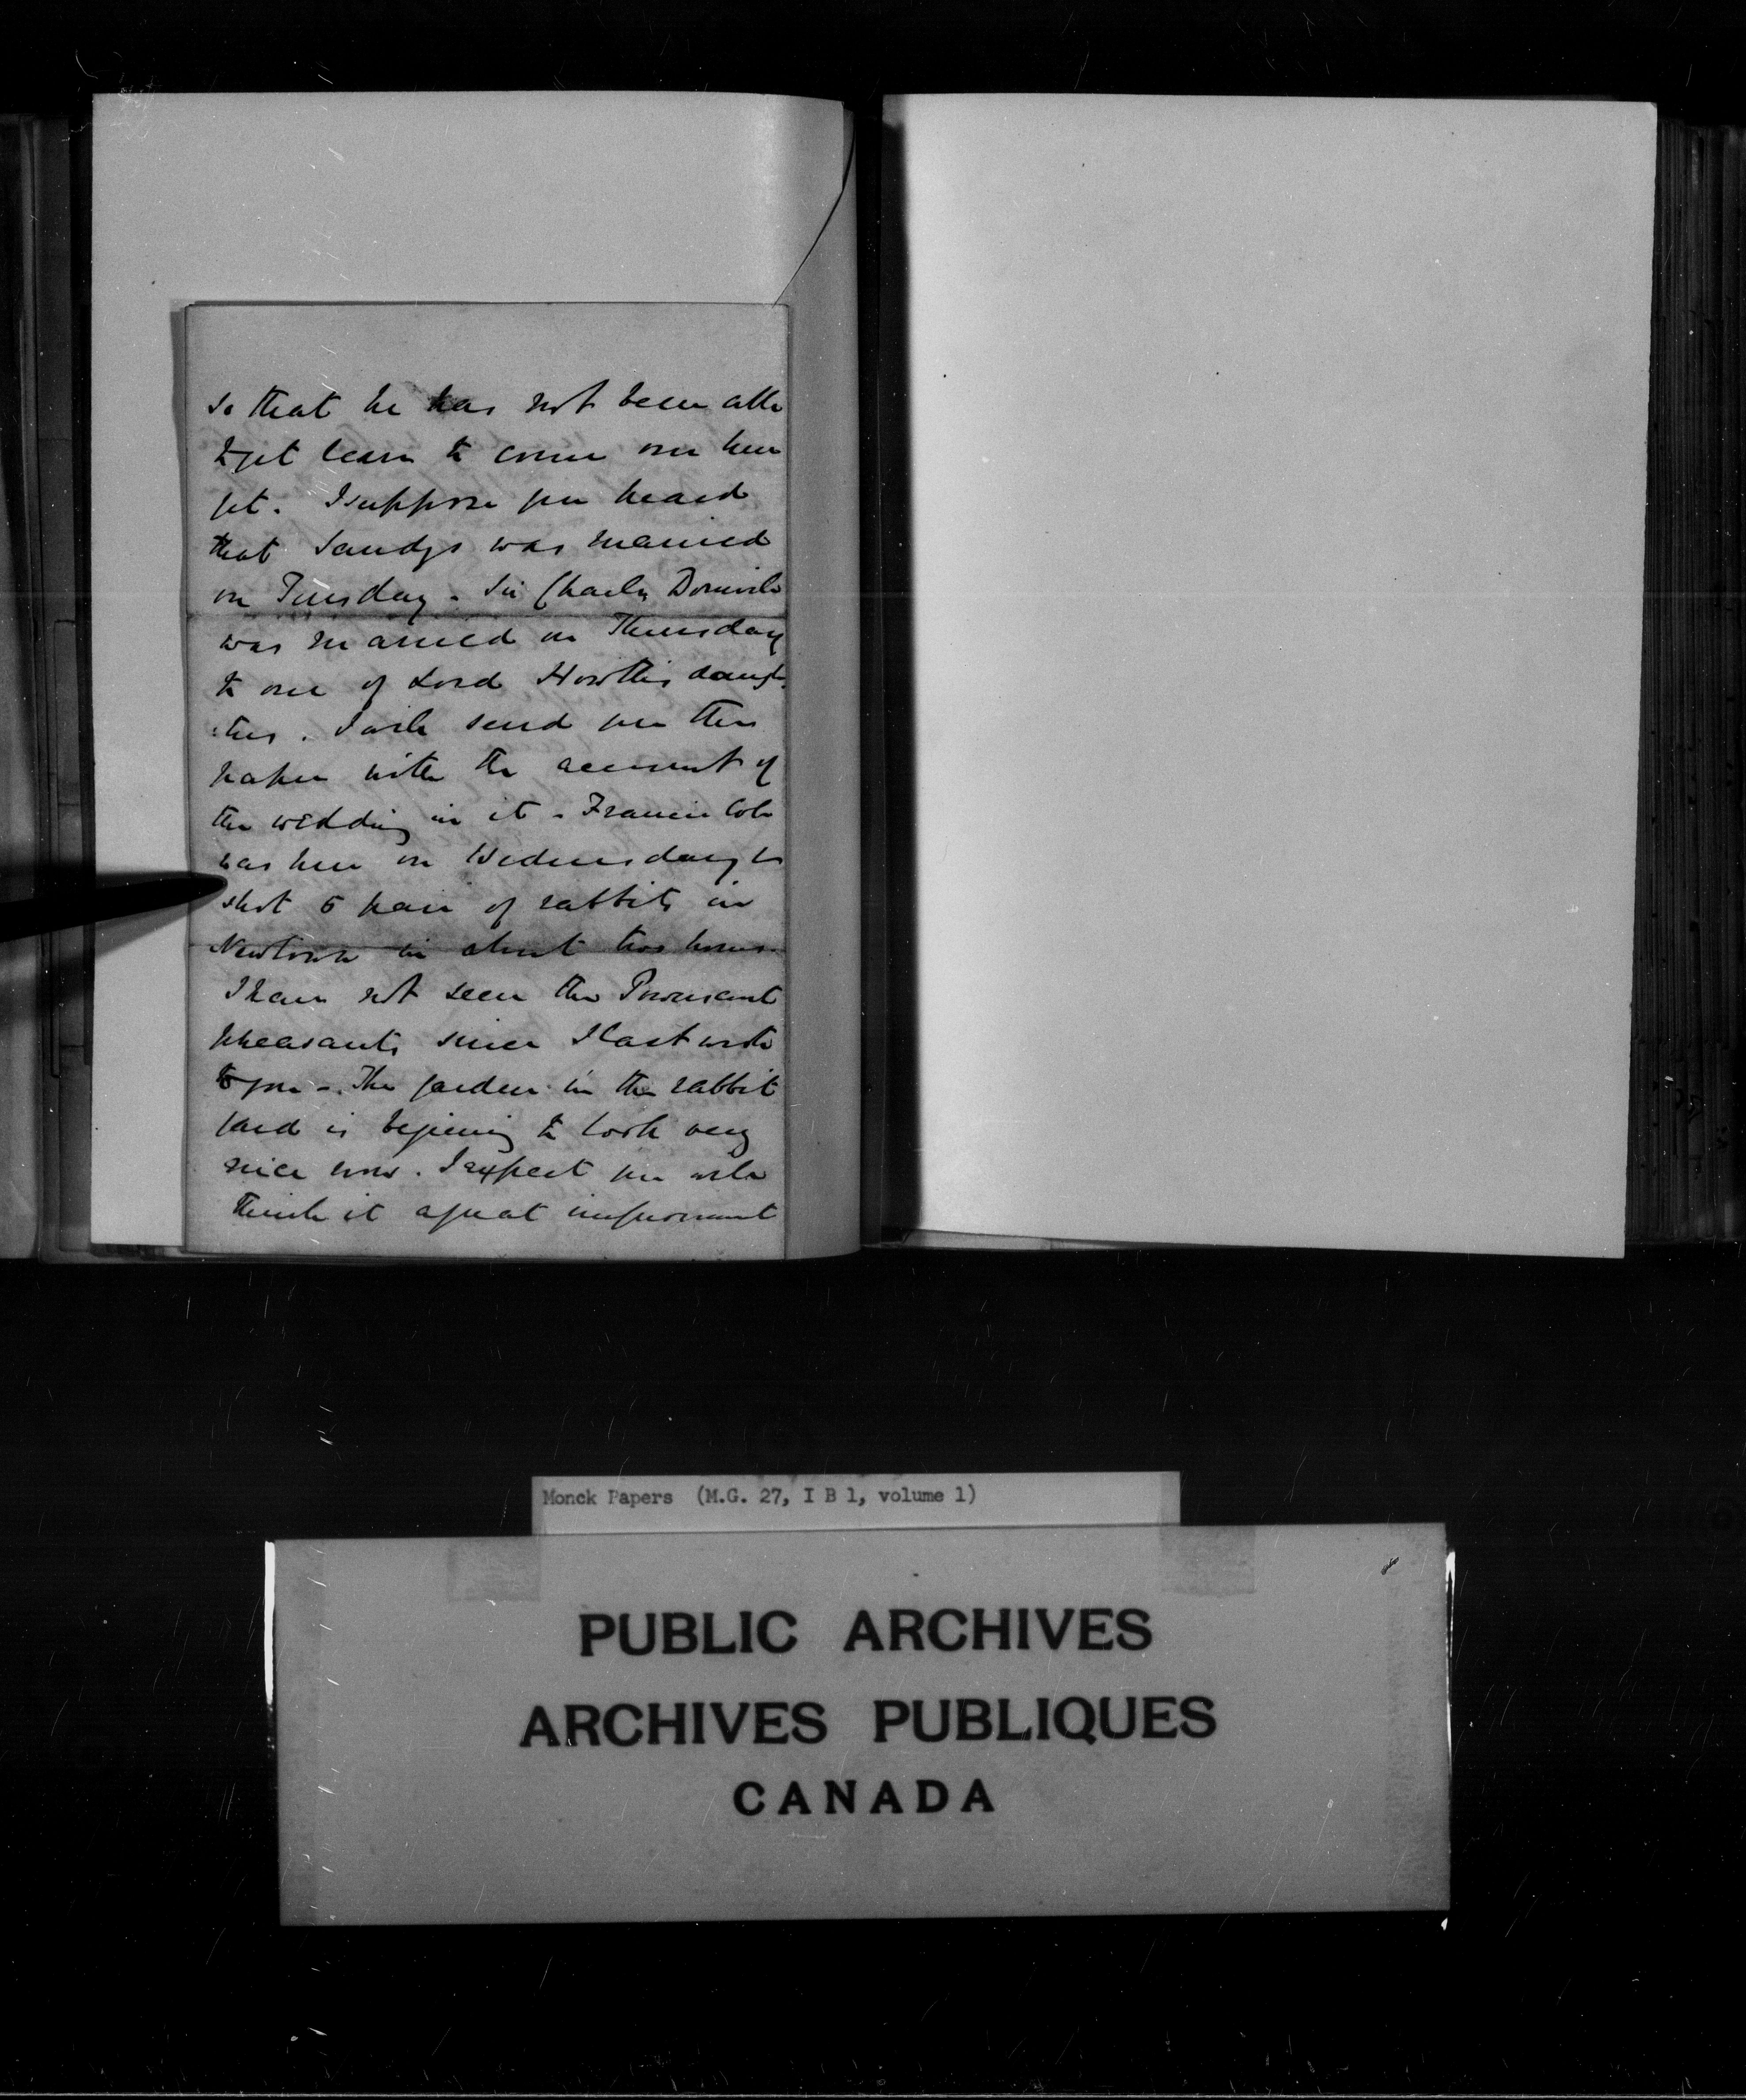 so that he has not been able
to get leave to come over here
yet. I suppose you heard
that Sandys was married
on Tuesday - Sir Charles Domvile
was married on Thursday
to one of Lord Howth's daugh-
:ters. I will send you the
paper with the account of
the wedding in it - Francis Cole
was here on Wednesday he
shot 5 pair of rabbits in
Newtown in about two hours.
I have not seen the Powerscourt
pheasants since I last wrote
to you - The garden in the rabbit
yard is begining to look very
nice now. I expect you will
think it a great improvement
Monck Papers (M.G. 27, I B 1, volume 1)
PUBLIC ARCHIVES
ARCHIVES PUBLIQUES
CANADA